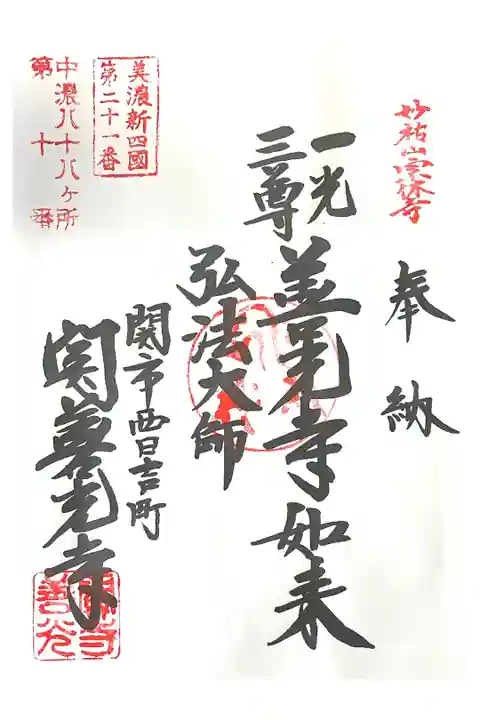 妙祐山宗休寺
奉納
一光
三尊
善光寺如来
弘法大師
美濃新四國
第二十一番
中濃八十八ヶ所
第十番
関市西日吉町
関善光寺
関善光寺